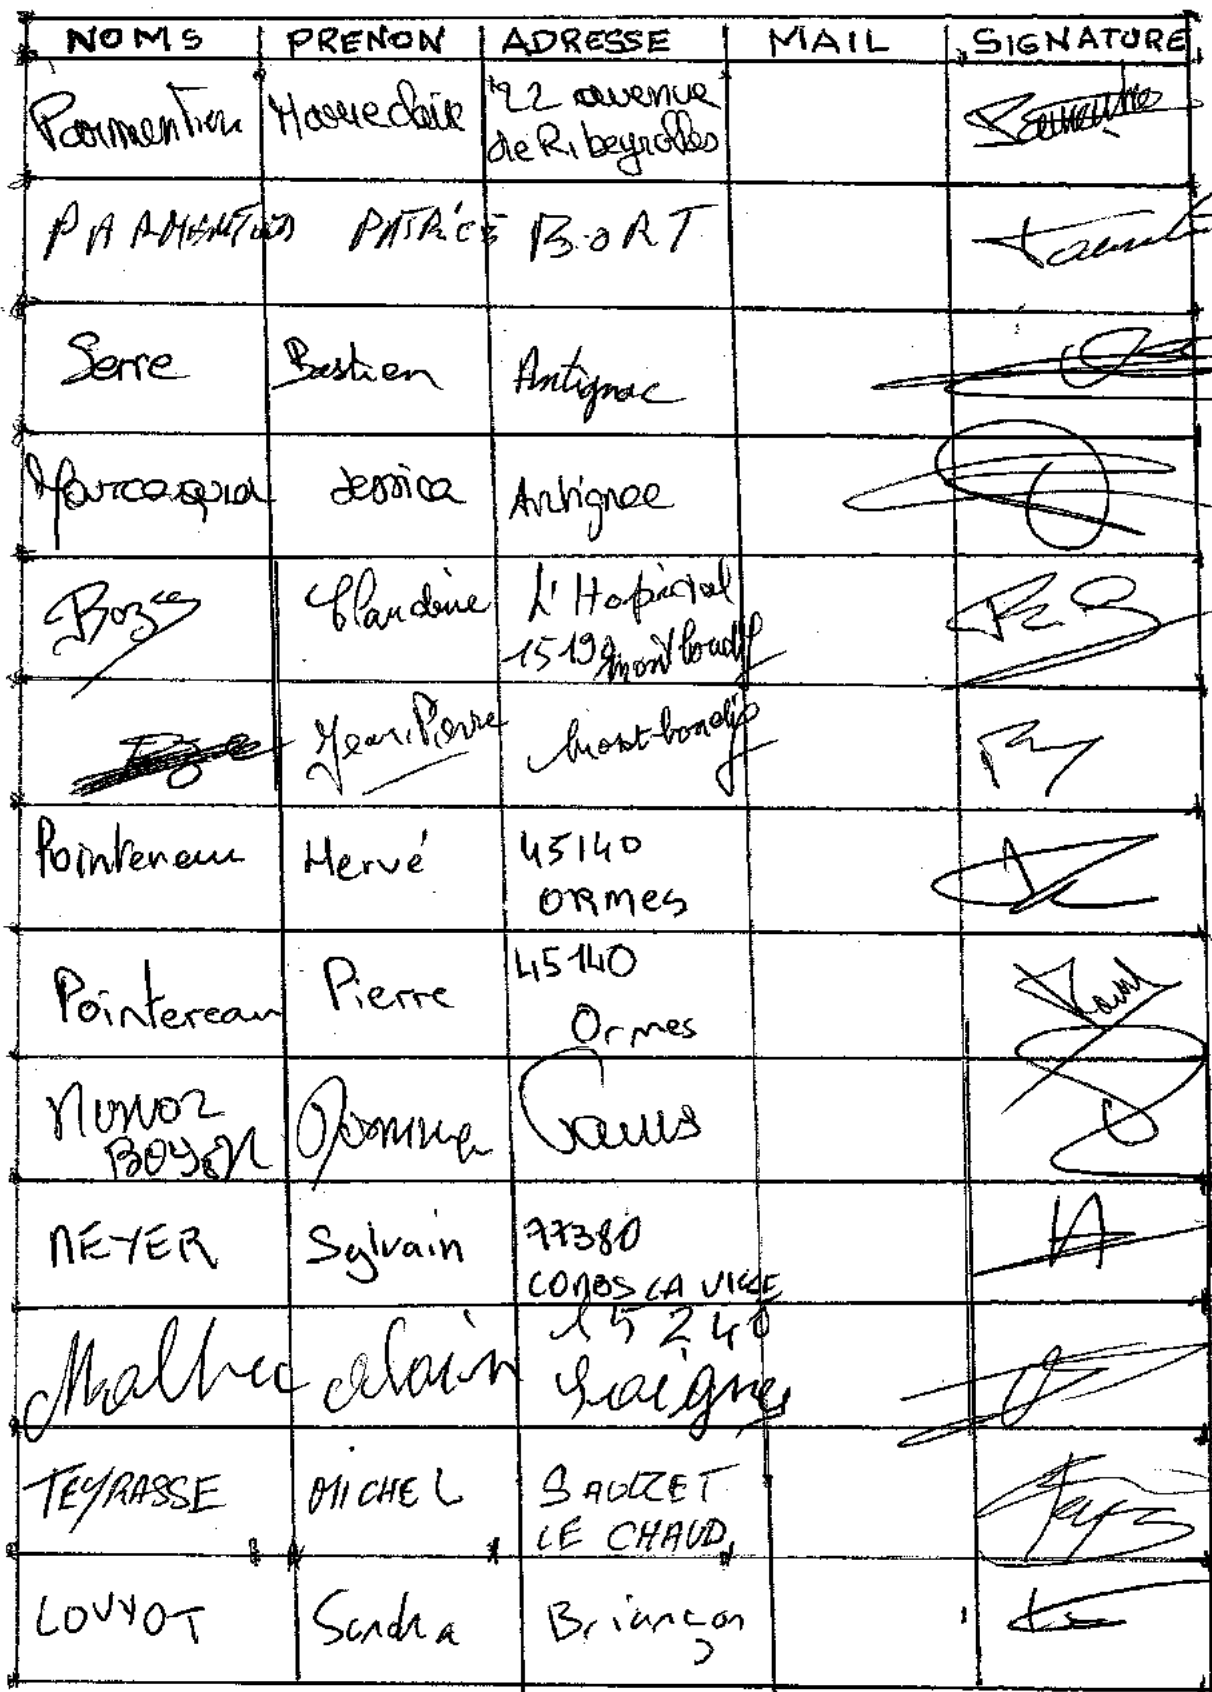 NOMS PRENON ADRESSE MAIL SIGNATURE
Parmentier Marie claire 22 avenue
de Ribeyrolles
PARMENTIER PATRICE BORT
Serre Bastien Antignac
Jessica Antignac
Claudine L'Hopital
15190 Montboudif
Jean-Pierre Mont-boudif
Pointereau Hervé 45140
ORMES
Pointereau Pierre 45140
Ormes
MUNOZ
BOYER Paris
MEYER Sylvain 77380
COMBS LA VILLE
15240
Malhec Alain Saignes
TEYRASSE MICHEL SAUZET
LE CHAUD
LOUYOT Sandra Briançon